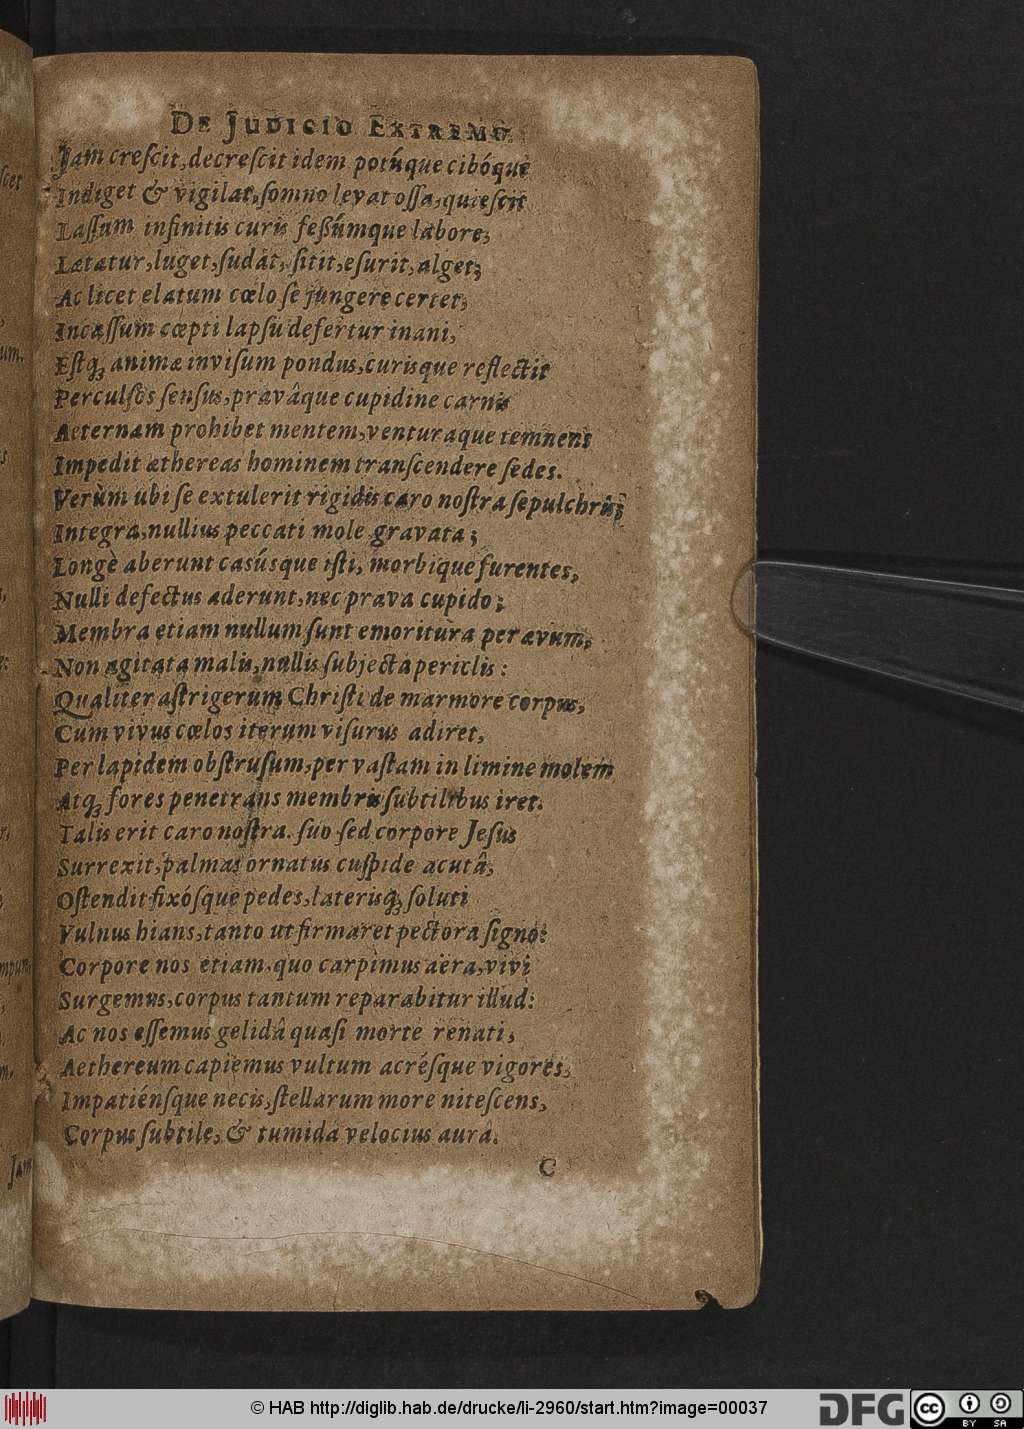 De Judicio Extremo.
Jam creſcit, decreſcit idem potúque cibóque
Indiget & vigilat, ſomno levat oſſa, quieſcit
Laſſum infinitis curis feßúmque labore;
Lætatur, luget, ſudat, ſitit, eſurit, alget;
Ac licet elatum cœlo ſe jungere certet;
Incaſſum cœpti lapſu defertur inani,
Eſtq; animæ inviſum pondus, curisque reflectit
Perculſos ſenſus, pravâque cupidine carnis
Aeternam prohibet mentem, venturaque temnens
Impedit æthereas hominem tranſcendere ſedes.
Verùm ubi ſe extulerit rigidis caro noſtra ſepulchris;
Integra, nullius peccati mole gravata;
Longè aberunt casúsque iſti, morbique furentes,
Nulli defectus aderunt, nec prava cupido;
Membra etiam nullum ſunt emoritura per ævum,
Non agitata malis, nullis ſubjecta periclis:
Qualiter aſtrigerum Chriſti de marmore corpus,
Cum vivus cœlos iterum viſurus adiret,
Per lapidem obſtruſum, per vaſtam in limine molem
Atq; fores penetrans membris ſubtilibus iret.
Talis erit caro noſtra. ſuo ſed corpore Jeſus
Surrexit, palmas ornatus cuſpide acutâ,
Oſtendit fixóſque pedes, laterisq; ſoluti
Vulnus hians, tanto ut firmaret pectora ſigno:
Corpore nos etiam, quo carpimus aëra, vivi
Surgemus, corpus tantum reparabitur illud:
Ac nos eſſemus gelidâ quaſi morte renati,
Aethereum capiemus vultum acréſque vigores,
Impatiénſque necis, ſtellarum more niteſcens,
Corpus ſubtile, & tumida velocius aurâ.
C
© HAB http://diglib.hab.de/drucke/li-2960/start.htm?image=00037
DFG
cc
BY SA